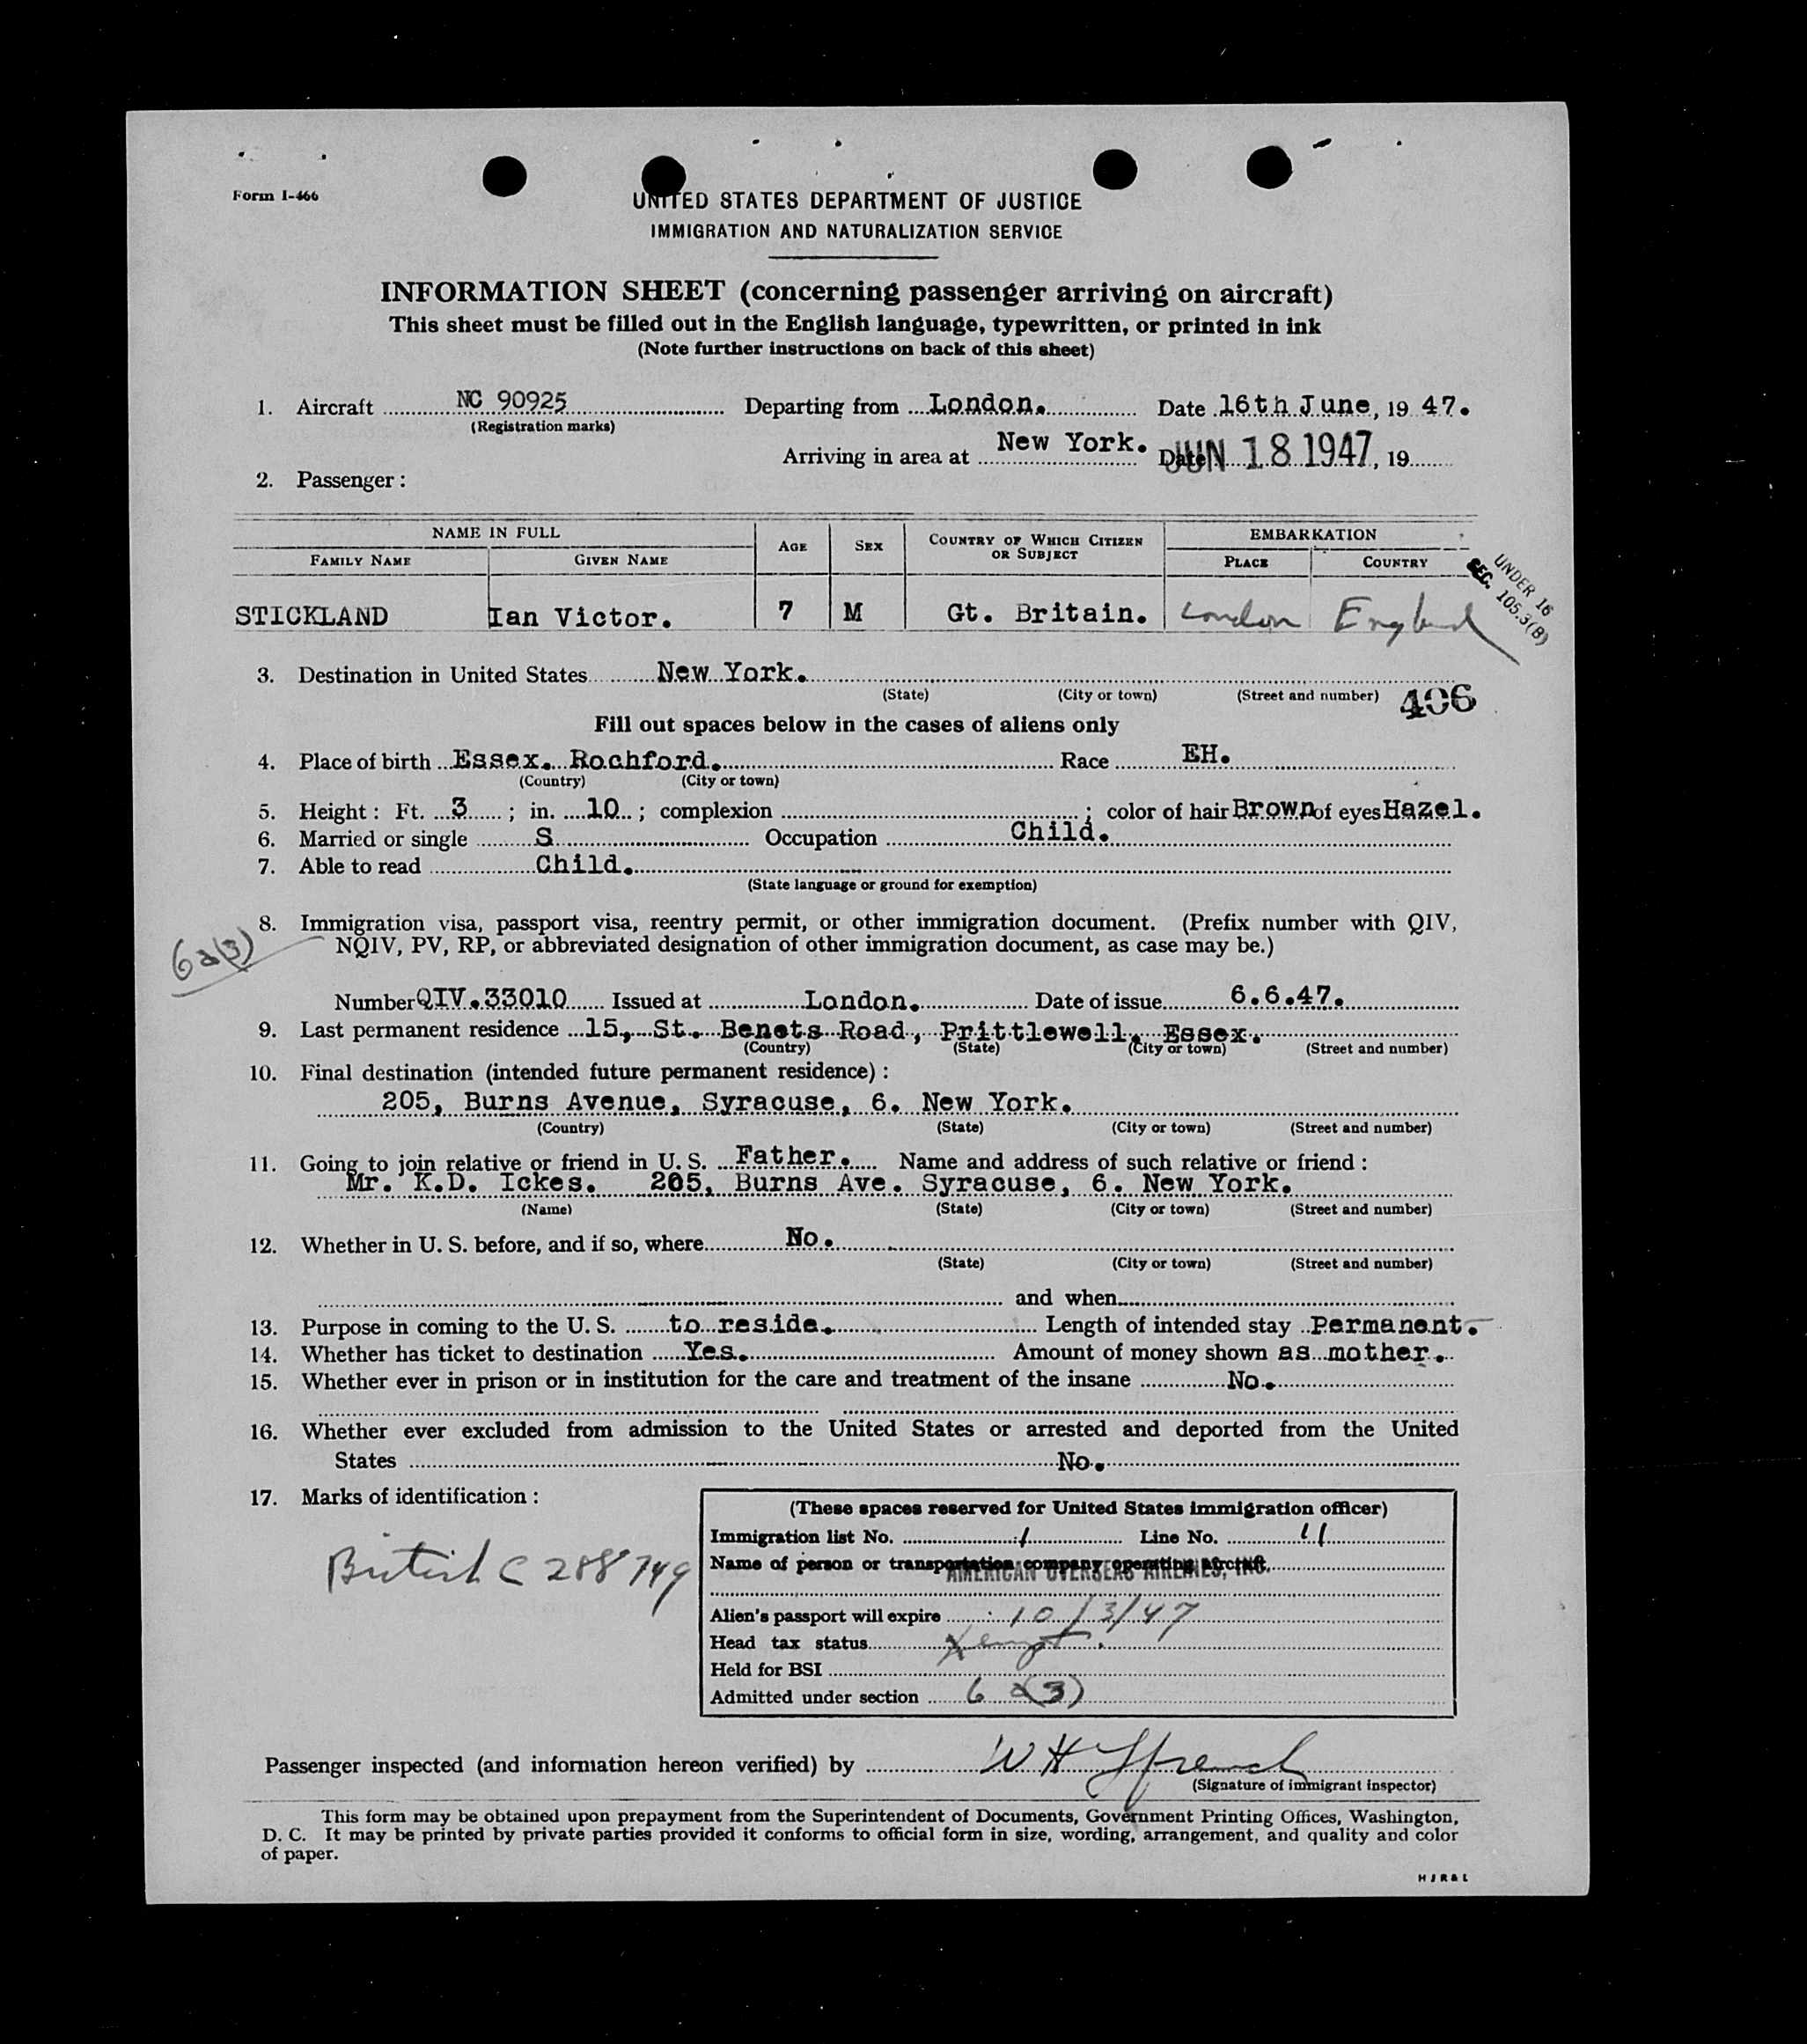 Form I-466
UNITED STATES DEPARTMENT OF JUSTICE
IMMIGRATION AND NATURALIZATION SERVICE
INFORMATION SHEET (concerning passenger arriving on aircraft)
This sheet must be filled out in the English language, typewritten, or printed in ink
(Note further instructions on back of this sheet)
1. Aircraft NC 90925 Departing from London. Date 16th June, 19 47.
(Registration marks)
Arriving in area at New York. Date JUN 18 1947, 19
2. Passenger:
NAME IN FULL AGE SEX COUNTRY OF WHICH CITIZEN OR SUBJECT EMBARKATION
FAMILY NAME GIVEN NAME PLACE COUNTRY
UNDER 16
SEC. 105.3(B)
STICKLAND Ian Victor. 7 M Gt. Britain. London England
3. Destination in United States New York.
(State) (City or town) (Street and number) 406
Fill out spaces below in the cases of aliens only
4. Place of birth Essex. Rochford. Race EH.
(Country) (City or town)
5. Height: Ft. 3; in. 10; complexion ; color of hair Brown of eyes Hazel.
6. Married or single S Occupation Child.
7. Able to read Child.
(State language or ground for exemption)
8. Immigration visa, passport visa, reentry permit, or other immigration document. (Prefix number with QIV,
6a(3) NQIV, PV, RP, or abbreviated designation of other immigration document, as case may be.)
Number QIV.33010 Issued at London. Date of issue 6.6.47.
9. Last permanent residence 15, St. Benets Road, Prittlewell, Essex.
(Country) (State) (City or town) (Street and number)
10. Final destination (intended future permanent residence):
205, Burns Avenue, Syracuse, 6. New York.
(Country) (State) (City or town) (Street and number)
11. Going to join relative or friend in U. S. Father. Name and address of such relative or friend:
Mr. K.D. Ickes. 205, Burns Ave. Syracuse, 6. New York.
(Name) (State) (City or town) (Street and number)
12. Whether in U. S. before, and if so, where No.
(State) (City or town) (Street and number)
and when
13. Purpose in coming to the U. S. to reside. Length of intended stay Permanent.
14. Whether has ticket to destination Yes. Amount of money shown as mother.
15. Whether ever in prison or in institution for the care and treatment of the insane No.
16. Whether ever excluded from admission to the United States or arrested and deported from the United
States No.
17. Marks of identification:
British C 288749
(These spaces reserved for United States immigration officer)
Immigration list No. 1 Line No. 11
Name of person or transportation company operating aircraft AMERICAN OVERSEAS AIRLINES, INC.
Alien's passport will expire 10/3/47
Head tax status Xempt.
Held for BSI
Admitted under section 6 a(3)
Passenger inspected (and information hereon verified) by W H
(Signature of immigrant inspector)
This form may be obtained upon prepayment from the Superintendent of Documents, Government Printing Offices, Washington,
D. C. It may be printed by private parties provided it conforms to official form in size, wording, arrangement, and quality and color
of paper.
H J R & L